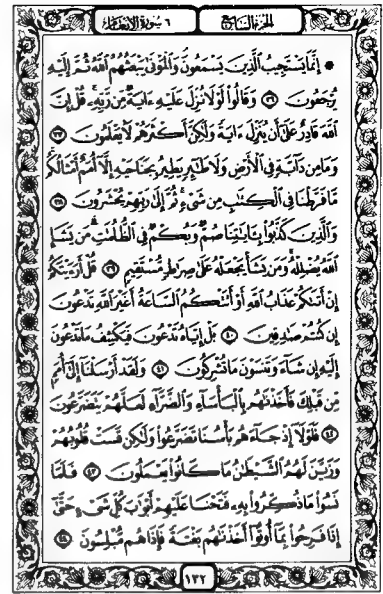 الجزء السابع
٦ سورة الأنعام
۞ إِنَّمَا يَسْتَجِيبُ ٱلَّذِينَ يَسْمَعُونَ وَٱلْمَوْتَىٰ يَبْعَثُهُمُ ٱللَّهُ ثُمَّ إِلَيْهِ
يُرْجَعُونَ ٣٦ وَقَالُوا۟ لَوْلَا نُزِّلَ عَلَيْهِ ءَايَةٌ مِّن رَّبِّهِۦ قُلْ إِنَّ
ٱللَّهَ قَادِرٌ عَلَىٰٓ أَن يُنَزِّلَ ءَايَةً وَلَٰكِنَّ أَكْثَرَهُمْ لَا يَعْلَمُونَ ٣٧
وَمَا مِن دَآبَّةٍ فِى ٱلْأَرْضِ وَلَا طَٰٓئِرٍ يَطِيرُ بِجَنَاحَيْهِ إِلَّآ أُمَمٌ أَمْثَالُكُم
مَّا فَرَّطْنَا فِى ٱلْكِتَٰبِ مِن شَىْءٍ ثُمَّ إِلَىٰ رَبِّهِمْ يُحْشَرُونَ ٣٨
وَٱلَّذِينَ كَذَّبُوا۟ بِـَٔايَٰتِنَا صُمٌّ وَبُكْمٌ فِى ٱلظُّلُمَٰتِ مَن يَشَإِ
ٱللَّهُ يُضْلِلْهُ وَمَن يَشَأْ يَجْعَلْهُ عَلَىٰ صِرَٰطٍ مُّسْتَقِيمٍ ٣٩ قُلْ أَرَءَيْتَكُمْ
إِنْ أَتَىٰكُمْ عَذَابُ ٱللَّهِ أَوْ أَتَتْكُمُ ٱلسَّاعَةُ أَغَيْرَ ٱللَّهِ تَدْعُونَ
إِن كُنتُمْ صَٰدِقِينَ ٤٠ بَلْ إِيَّاهُ تَدْعُونَ فَيَكْشِفُ مَا تَدْعُونَ
إِلَيْهِ إِن شَآءَ وَتَنسَوْنَ مَا تُشْرِكُونَ ٤١ وَلَقَدْ أَرْسَلْنَآ إِلَىٰٓ أُمَمٍ
مِّن قَبْلِكَ فَأَخَذْنَٰهُم بِٱلْبَأْسَآءِ وَٱلضَّرَّآءِ لَعَلَّهُمْ يَتَضَرَّعُونَ
٤٢ فَلَوْلَآ إِذْ جَآءَهُم بَأْسُنَا تَضَرَّعُوا۟ وَلَٰكِن قَسَتْ قُلُوبُهُمْ
وَزَيَّنَ لَهُمُ ٱلشَّيْطَٰنُ مَا كَانُوا۟ يَعْمَلُونَ ٤٣ فَلَمَّا
نَسُوا۟ مَا ذُكِّرُوا۟ بِهِۦ فَتَحْنَا عَلَيْهِمْ أَبْوَٰبَ كُلِّ شَىْءٍ حَتَّىٰٓ
إِذَا فَرِحُوا۟ بِمَآ أُوتُوٓا۟ أَخَذْنَٰهُم بَغْتَةً فَإِذَا هُم مُّبْلِسُونَ ٤٤
١٣٢